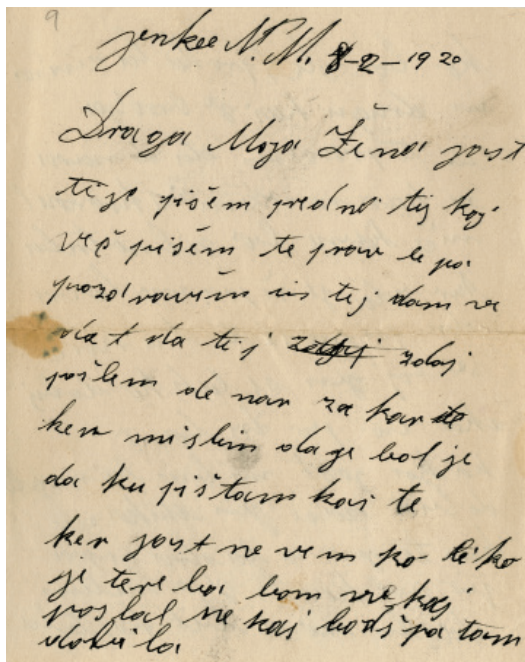 9
yenkee N. M. 8-2-1920
Draga Moja Žena jast
tije pišem predno tij kaj
več pišem te prav le pa
pozdravim in tij dam ve
dat da tij zdaj
pošlem de nar za kar
ker mislim da je bol je
da ku piš tam kar te
ker jast ne vem ko liko
je tere ba bom ve kaj
poslal ne kaj bodš pa tam
dobila